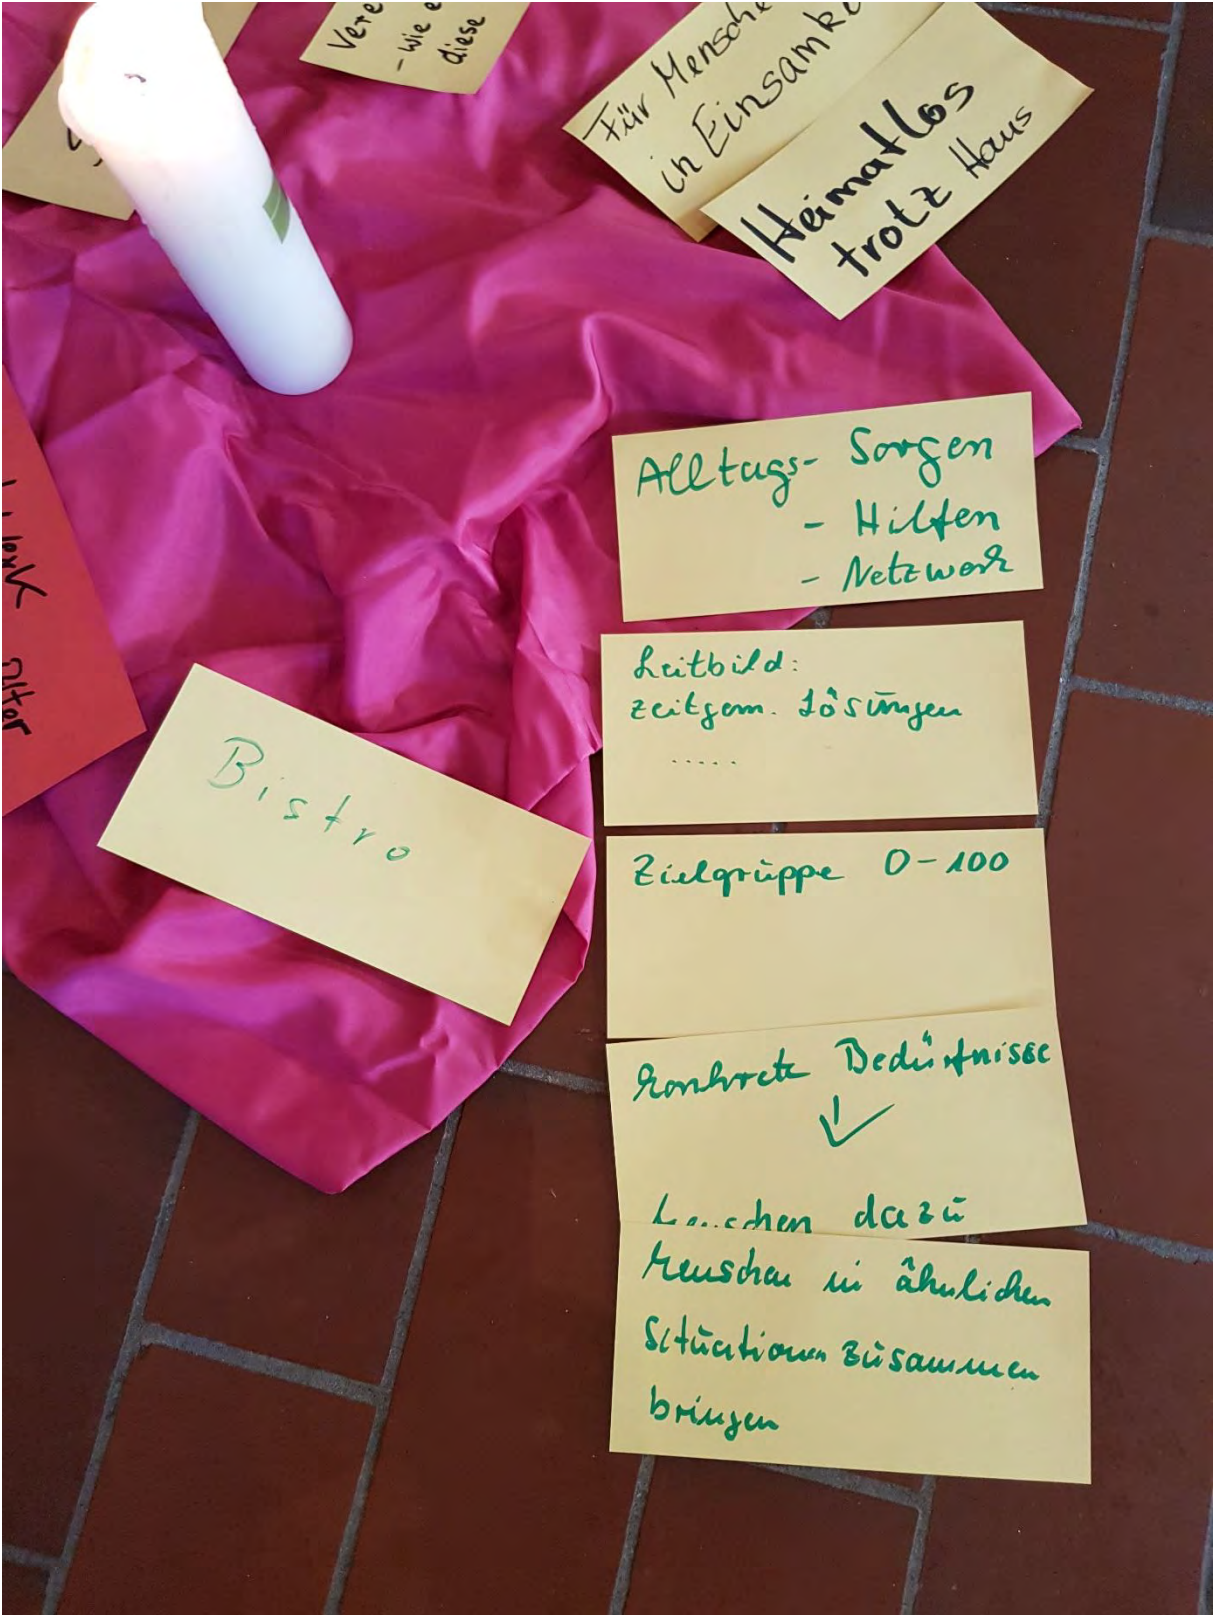 - wie
diese
Für Menschen
in Einsamke
Heimatlos
trotz Haus
Alltags- Sorgen
- Hilfen
- Netzwerk
Leitbild:
zeitgem. Lösungen
.....
Bistro
Zielgruppe 0-100
konkrete Bedürfnisse
dazu
Menschen in ähnlichen
Situationen zusammen
bringen